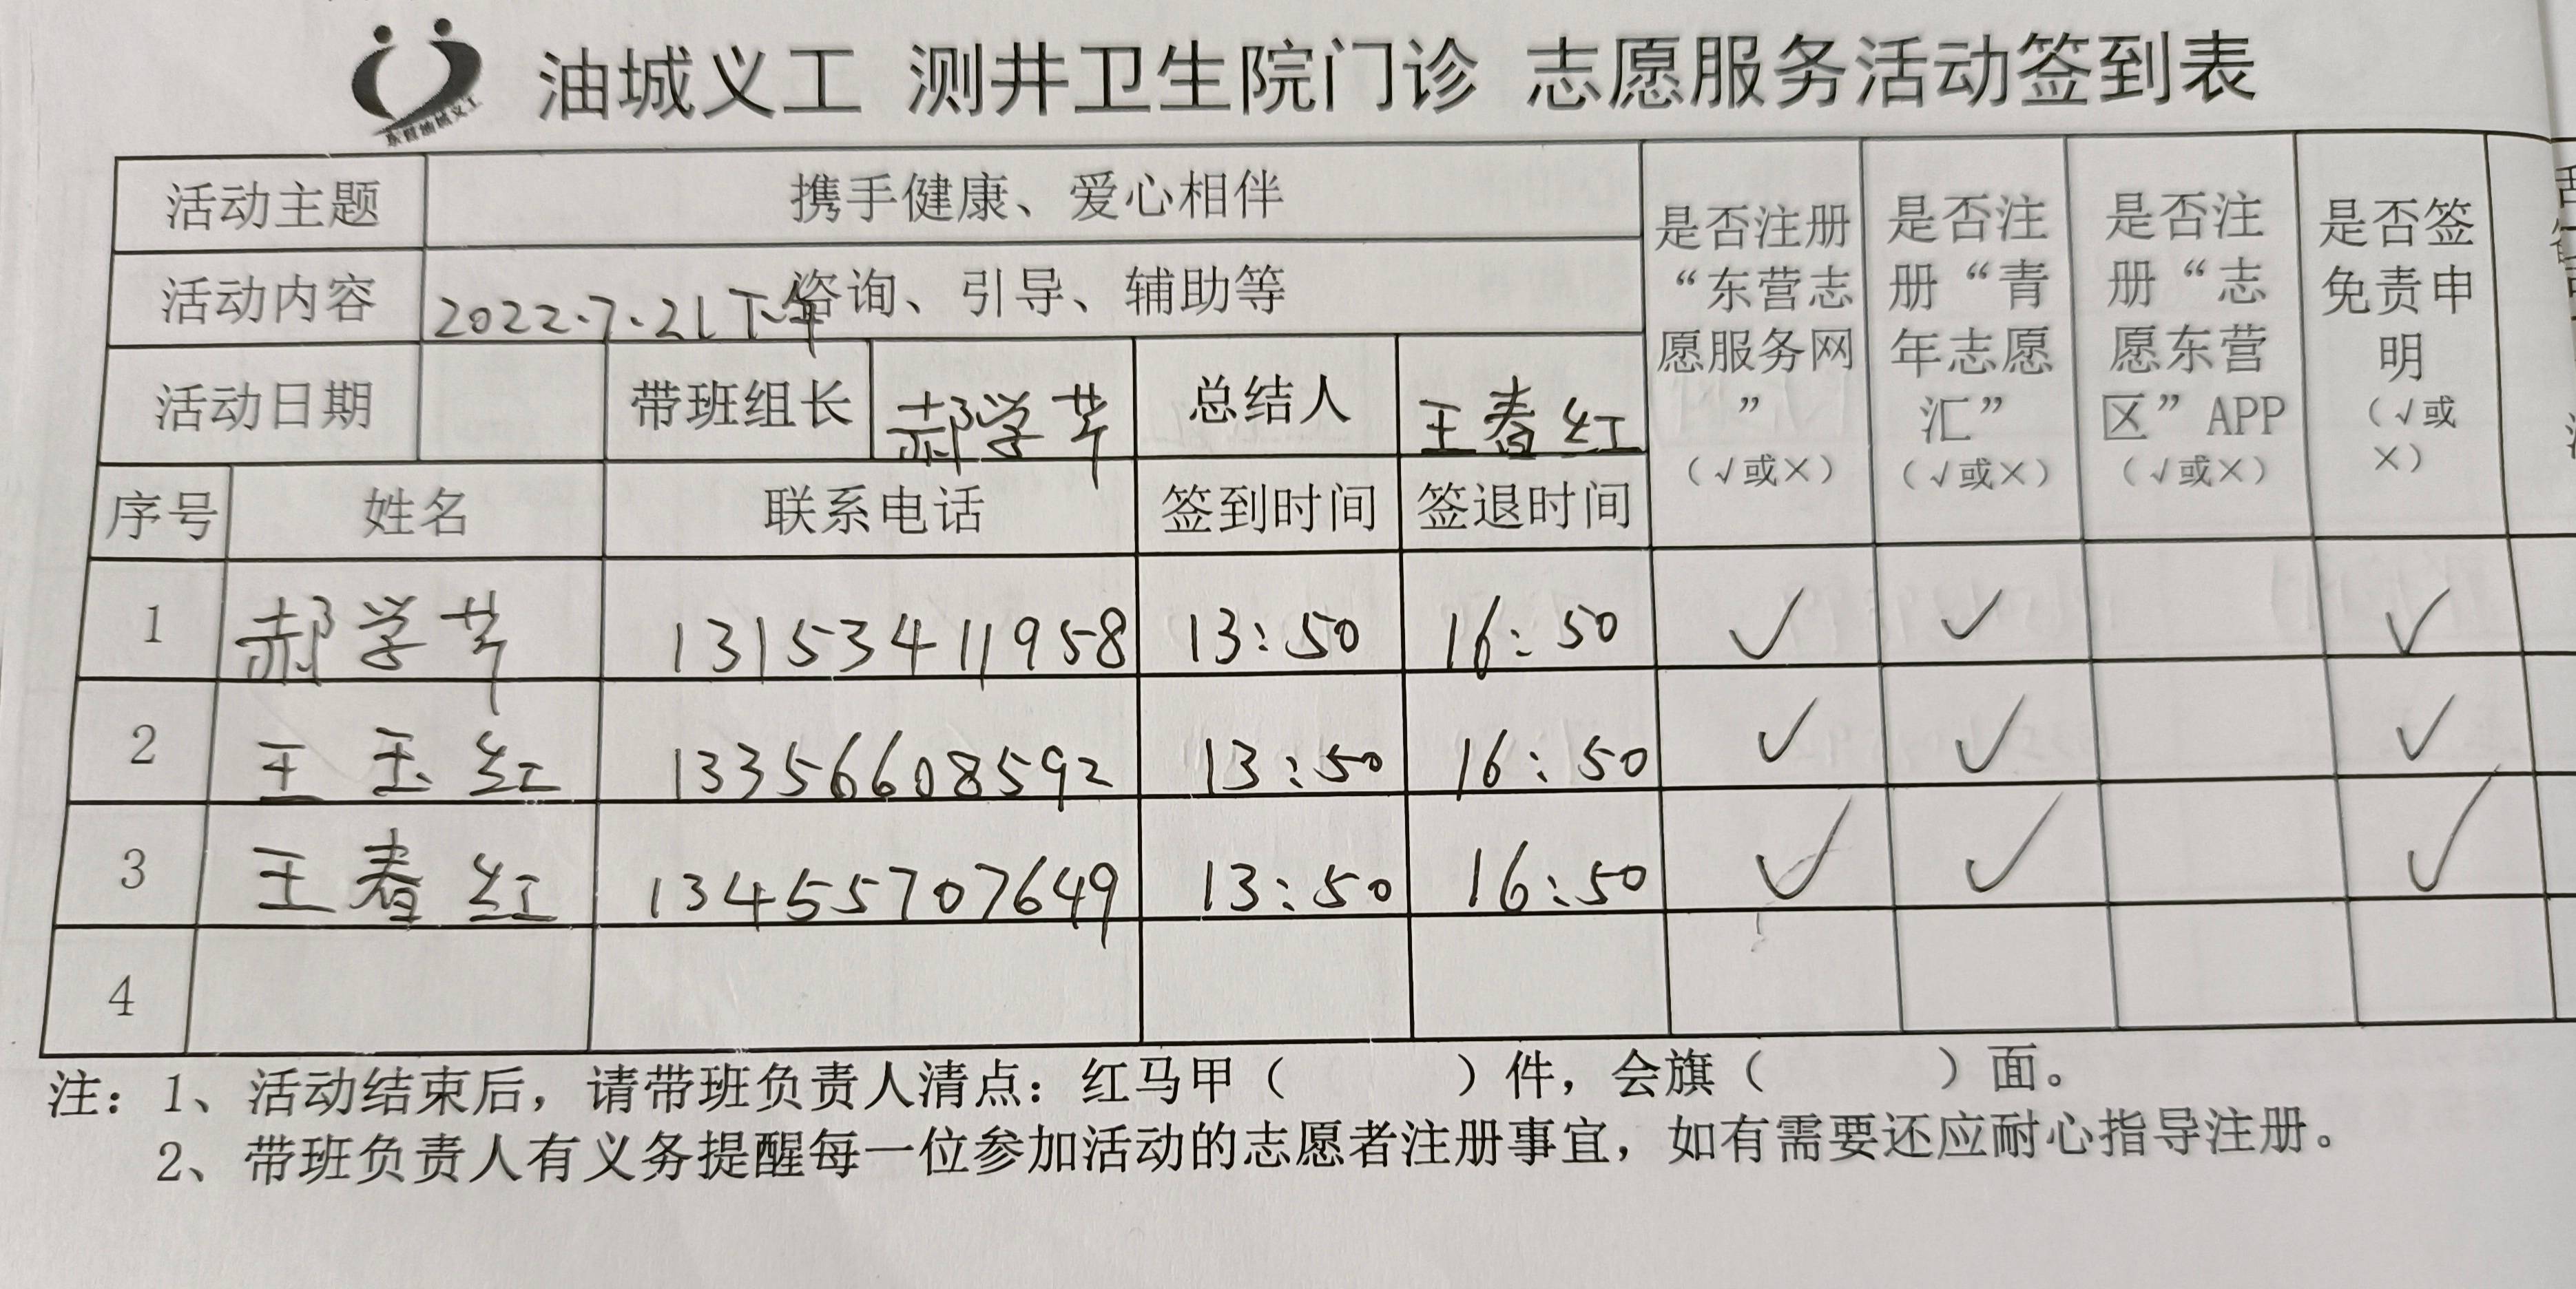 东营油城义工
油城义工 测井卫生院门诊 志愿服务活动签到表
活动主题 携手健康、爱心相伴
活动内容 咨询、引导、辅助等
2022.7.21下午
活动日期 带班组长 郝学芹 总结人 王春红
是否注册“东营志愿服务网”（√或×）
是否注册“青年志愿汇”（√或×）
是否注册“志愿东营区”APP（√或×）
是否签免责申明（√或×）
序号 姓名 联系电话 签到时间 签退时间
1 郝学芹 13153411958 13:50 16:50 ✓ ✓ ✓
2 王玉红 13356608592 13:50 16:50 ✓ ✓ ✓
3 王春红 13455707649 13:50 16:50 ✓ ✓ ✓
4
注：1、活动结束后，请带班负责人清点：红马甲（ ）件，会旗（ ）面。
2、带班负责人有义务提醒每一位参加活动的志愿者注册事宜，如有需要还应耐心指导注册。